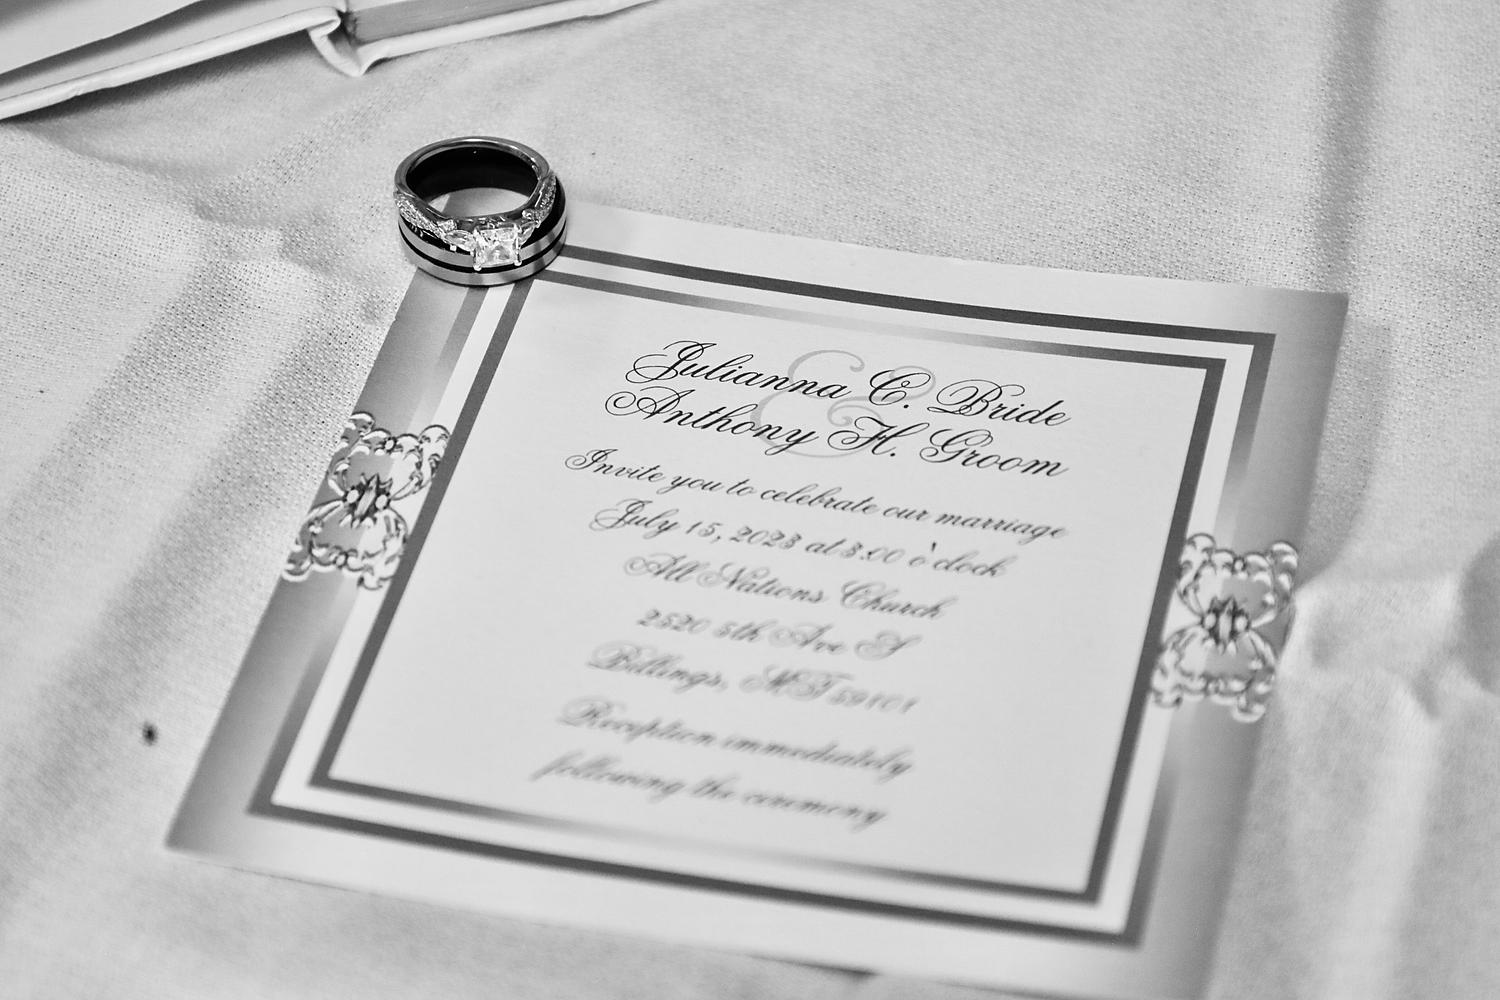 &
Julianna C. Bride
Anthony H. Groom
Invite you to celebrate our marriage
July 15, 2023 at 3:00 o'clock
All Nations Church
2520 5th Ave S
Billings, MT 59101
Reception immediately
following the ceremony